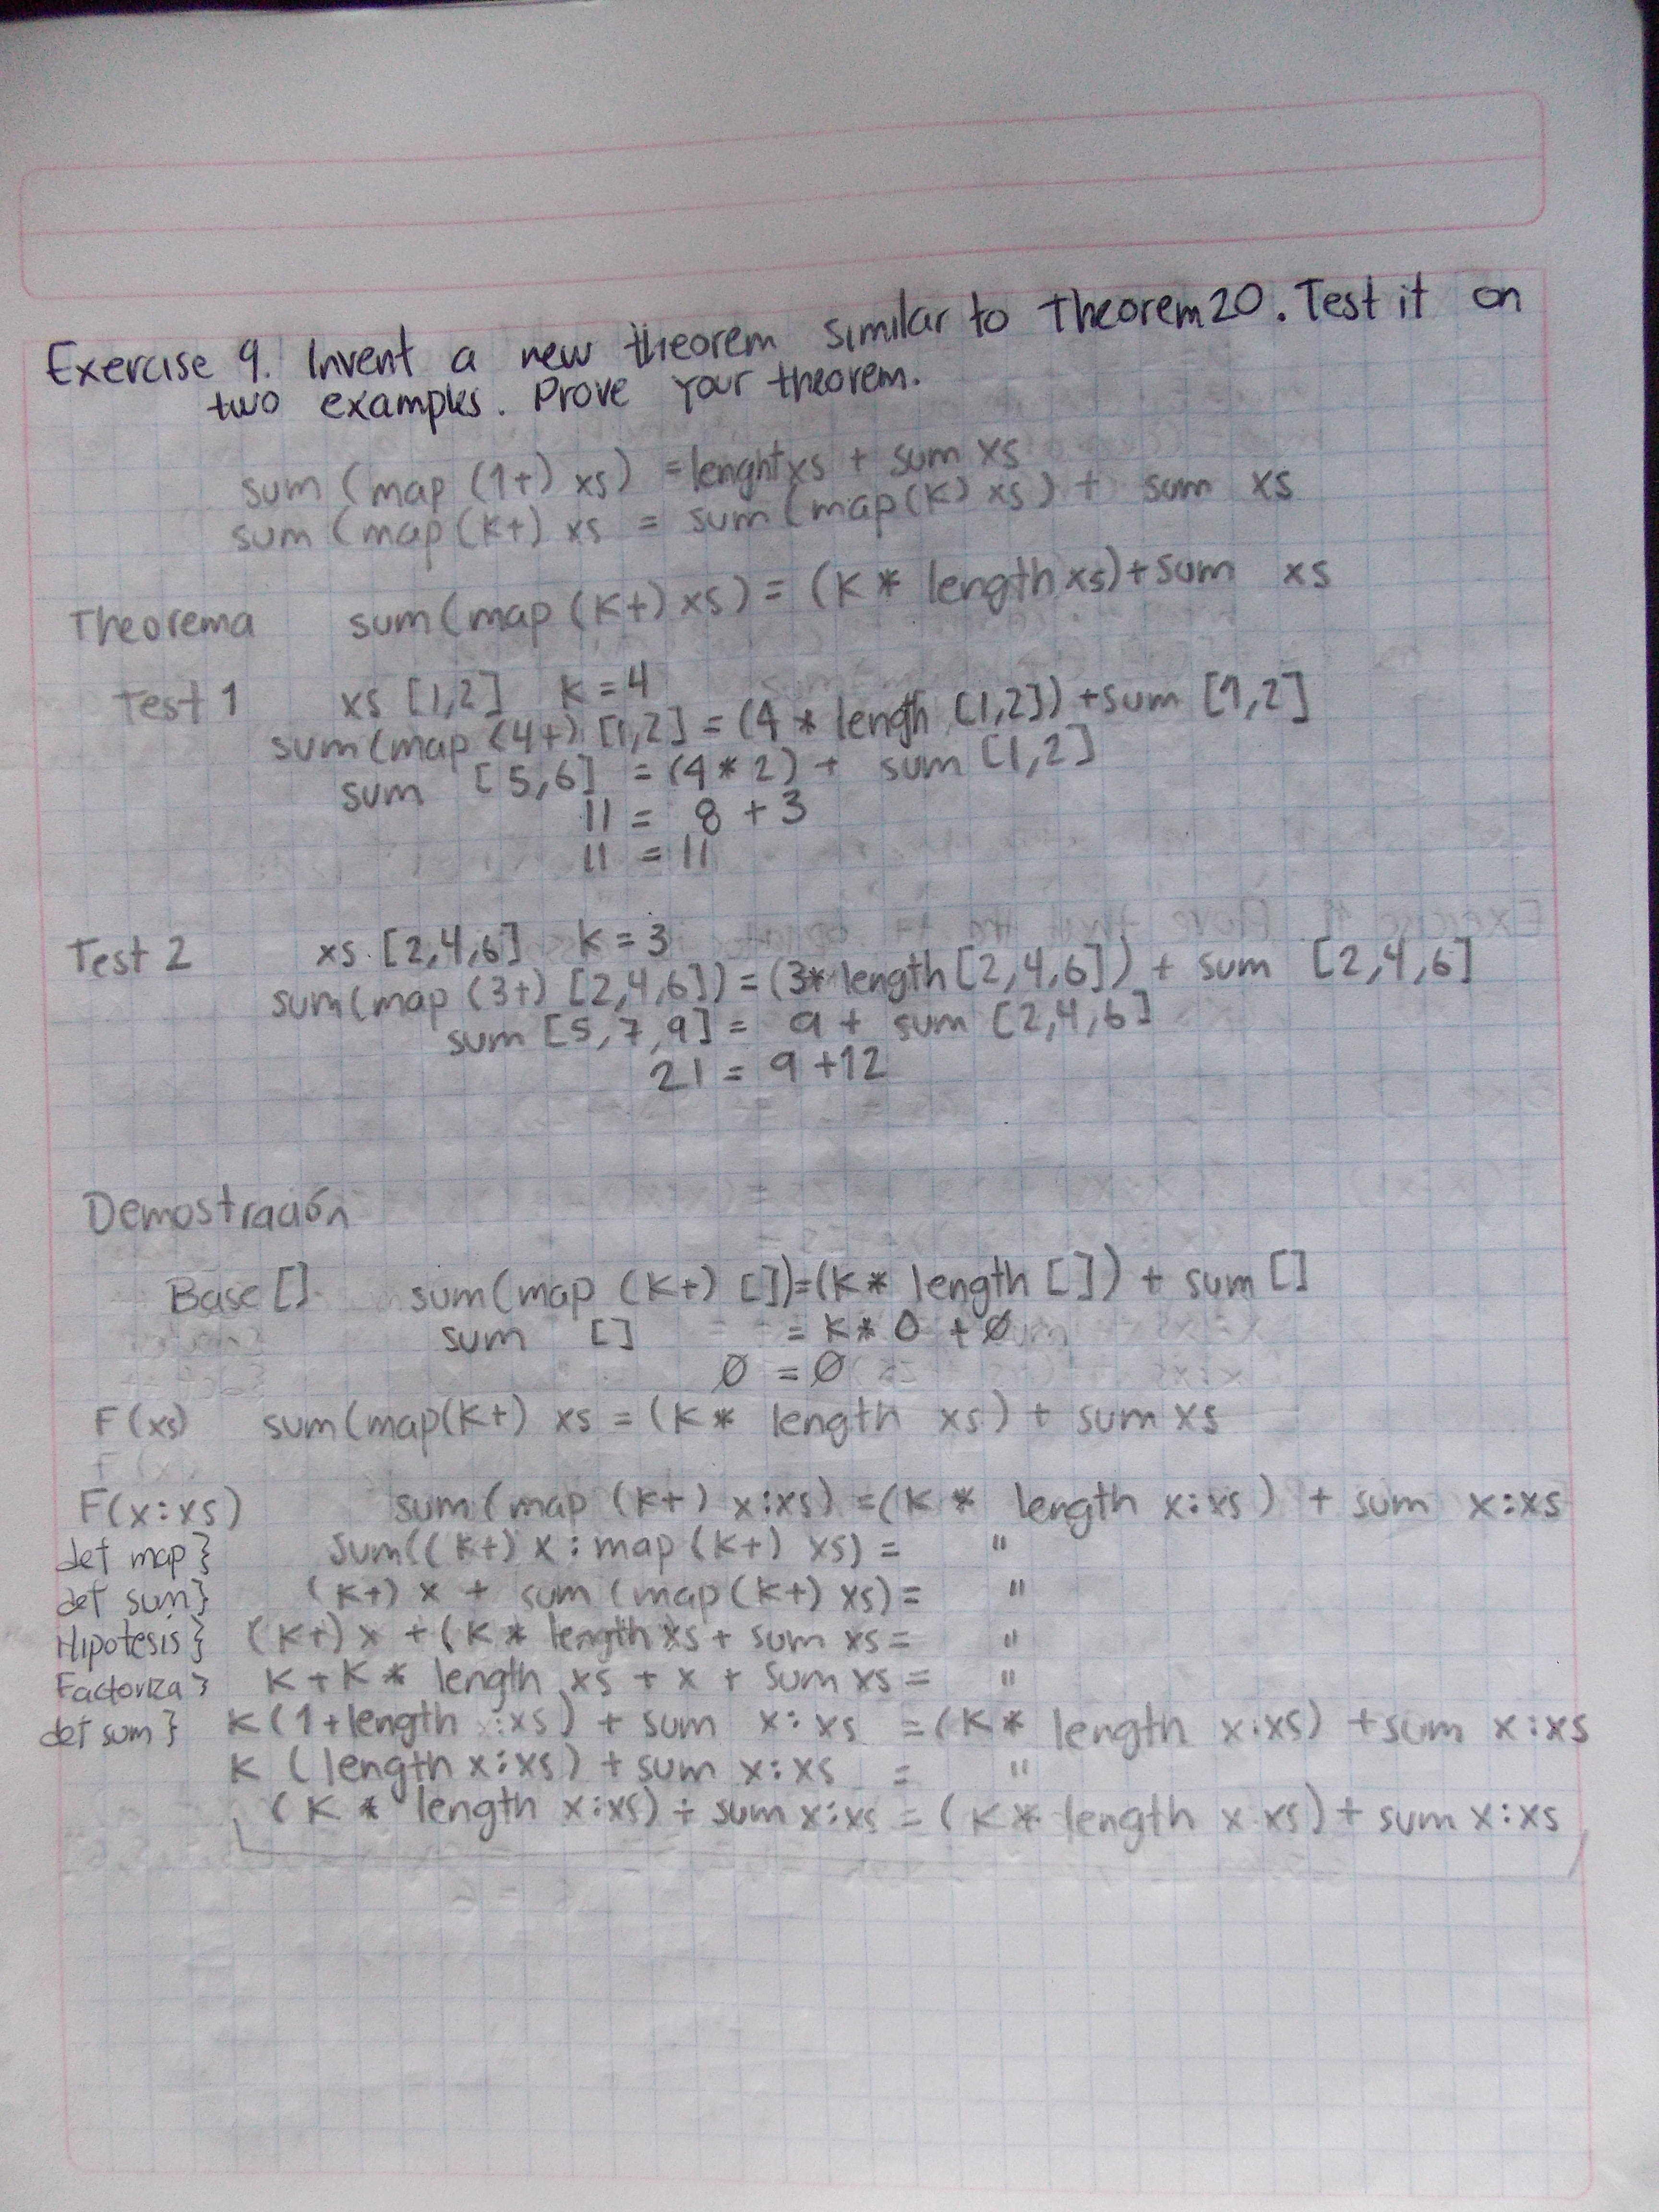 Exercise 9. Invent a new theorem similar to Theorem 20. Test it on
two examples. Prove your theorem.
sum (map (1+) xs) = lenght xs + sum xs
sum (map (k+) xs = sum (map (k) xs) + sum xs
Theorema sum (map (k+) xs) = (k * length xs) + sum xs
Test 1 xs [1,2] k = 4
sum (map (4+) [1,2] = (4 * length [1,2]) + sum [1,2]
sum [5,6] = (4 * 2) + sum [1,2]
11 = 8 + 3
11 = 11
Test 2 xs [2,4,6] k = 3
sum (map (3+) [2,4,6]) = (3 * length [2,4,6]) + sum [2,4,6]
sum [5,7,9] = 9 + sum [2,4,6]
21 = 9 + 12
Demostración
Base [] sum (map (k+) []) = (k * length []) + sum []
sum [] = k * 0 + Ø
Ø = Ø
F(xs) sum (map (k+) xs = (k * length xs) + sum xs
F(x:xs) sum (map (k+) x:xs) = (k * length x:xs) + sum x:xs
def map} sum ((k+) x : map (k+) xs) = "
def sum} (k+) x + sum (map (k+) xs) = "
Hipotesis} (k+) x + (k * length xs + sum xs = "
Factoriza} k + k * length xs + x + sum xs = "
def sum} k (1 + length xs) + sum x:xs = (k * length x:xs) + sum x:xs
k (length x:xs) + sum x:xs = "
(k * length x:xs) + sum x:xs = (k * length x:xs) + sum x:xs